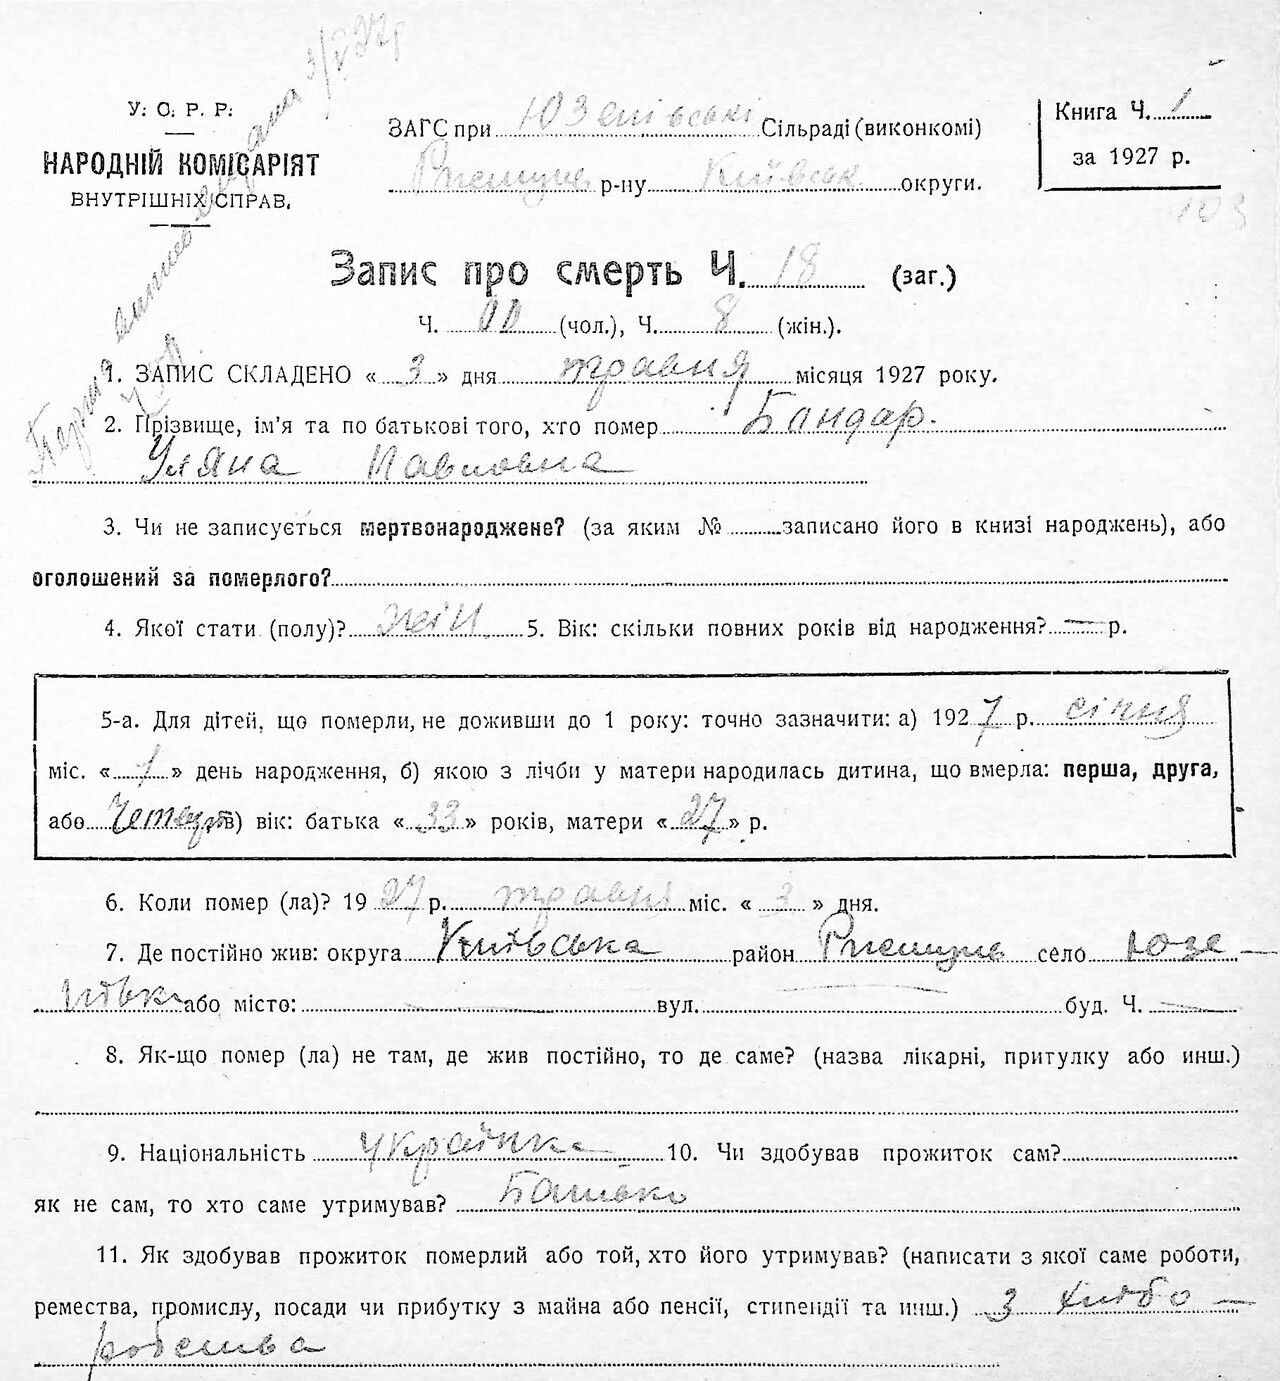 У. С. Р. Р.
НАРОДНІЙ КОМІСАРІЯТ
ВНУТРІШНІХ СПРАВ.
ЗАГС при Юзепівські Сільраді (виконкомі)
Ржищив. р-ну Київськ. округи.
Книга Ч. 1
за 1927 р.
Запис про смерть Ч. 18 (заг.)
Ч. 00 (чол.), Ч. 8 (жін.).
1. ЗАПИС СКЛАДЕНО « 3 » дня травня місяця 1927 року.
2. Прізвище, ім'я та по батькові того, хто помер Бондар.
Уляна Павловна
3. Чи не записується мертвонароджене? (за яким № записано його в книзі народжень), або
оголошений за померлого?
4. Якої стати (полу)? жін. 5. Вік: скільки повних років від народження? — р.
5-а. Для дітей, що померли, не доживши до 1 року: точно зазначити: а) 1927 р. січня
міс. « 1 » день народження, б) якою з лічби у матери народилась дитина, що вмерла: перша, друга,
або четверт в) вік: батька « 33 » років, матери « 27 » р.
6. Коли помер (ла)? 1927 р. травня міс. « 3 » дня.
7. Де постійно жив: округа Київська район Ржищив село Юзе—
півка або місто: — вул. буд. Ч. —
8. Як-що помер (ла) не там, де жив постійно, то де саме? (назва лікарні, притулку або инш.)
9. Національність українка 10. Чи здобував прожиток сам?
як не сам, то хто саме утримував? Батько
11. Як здобував прожиток померлий або той, хто його утримував? (написати з якої саме роботи,
ремества, промислу, посади чи прибутку з майна або пенсії, стипендії та инш.) З хлібо—
робства